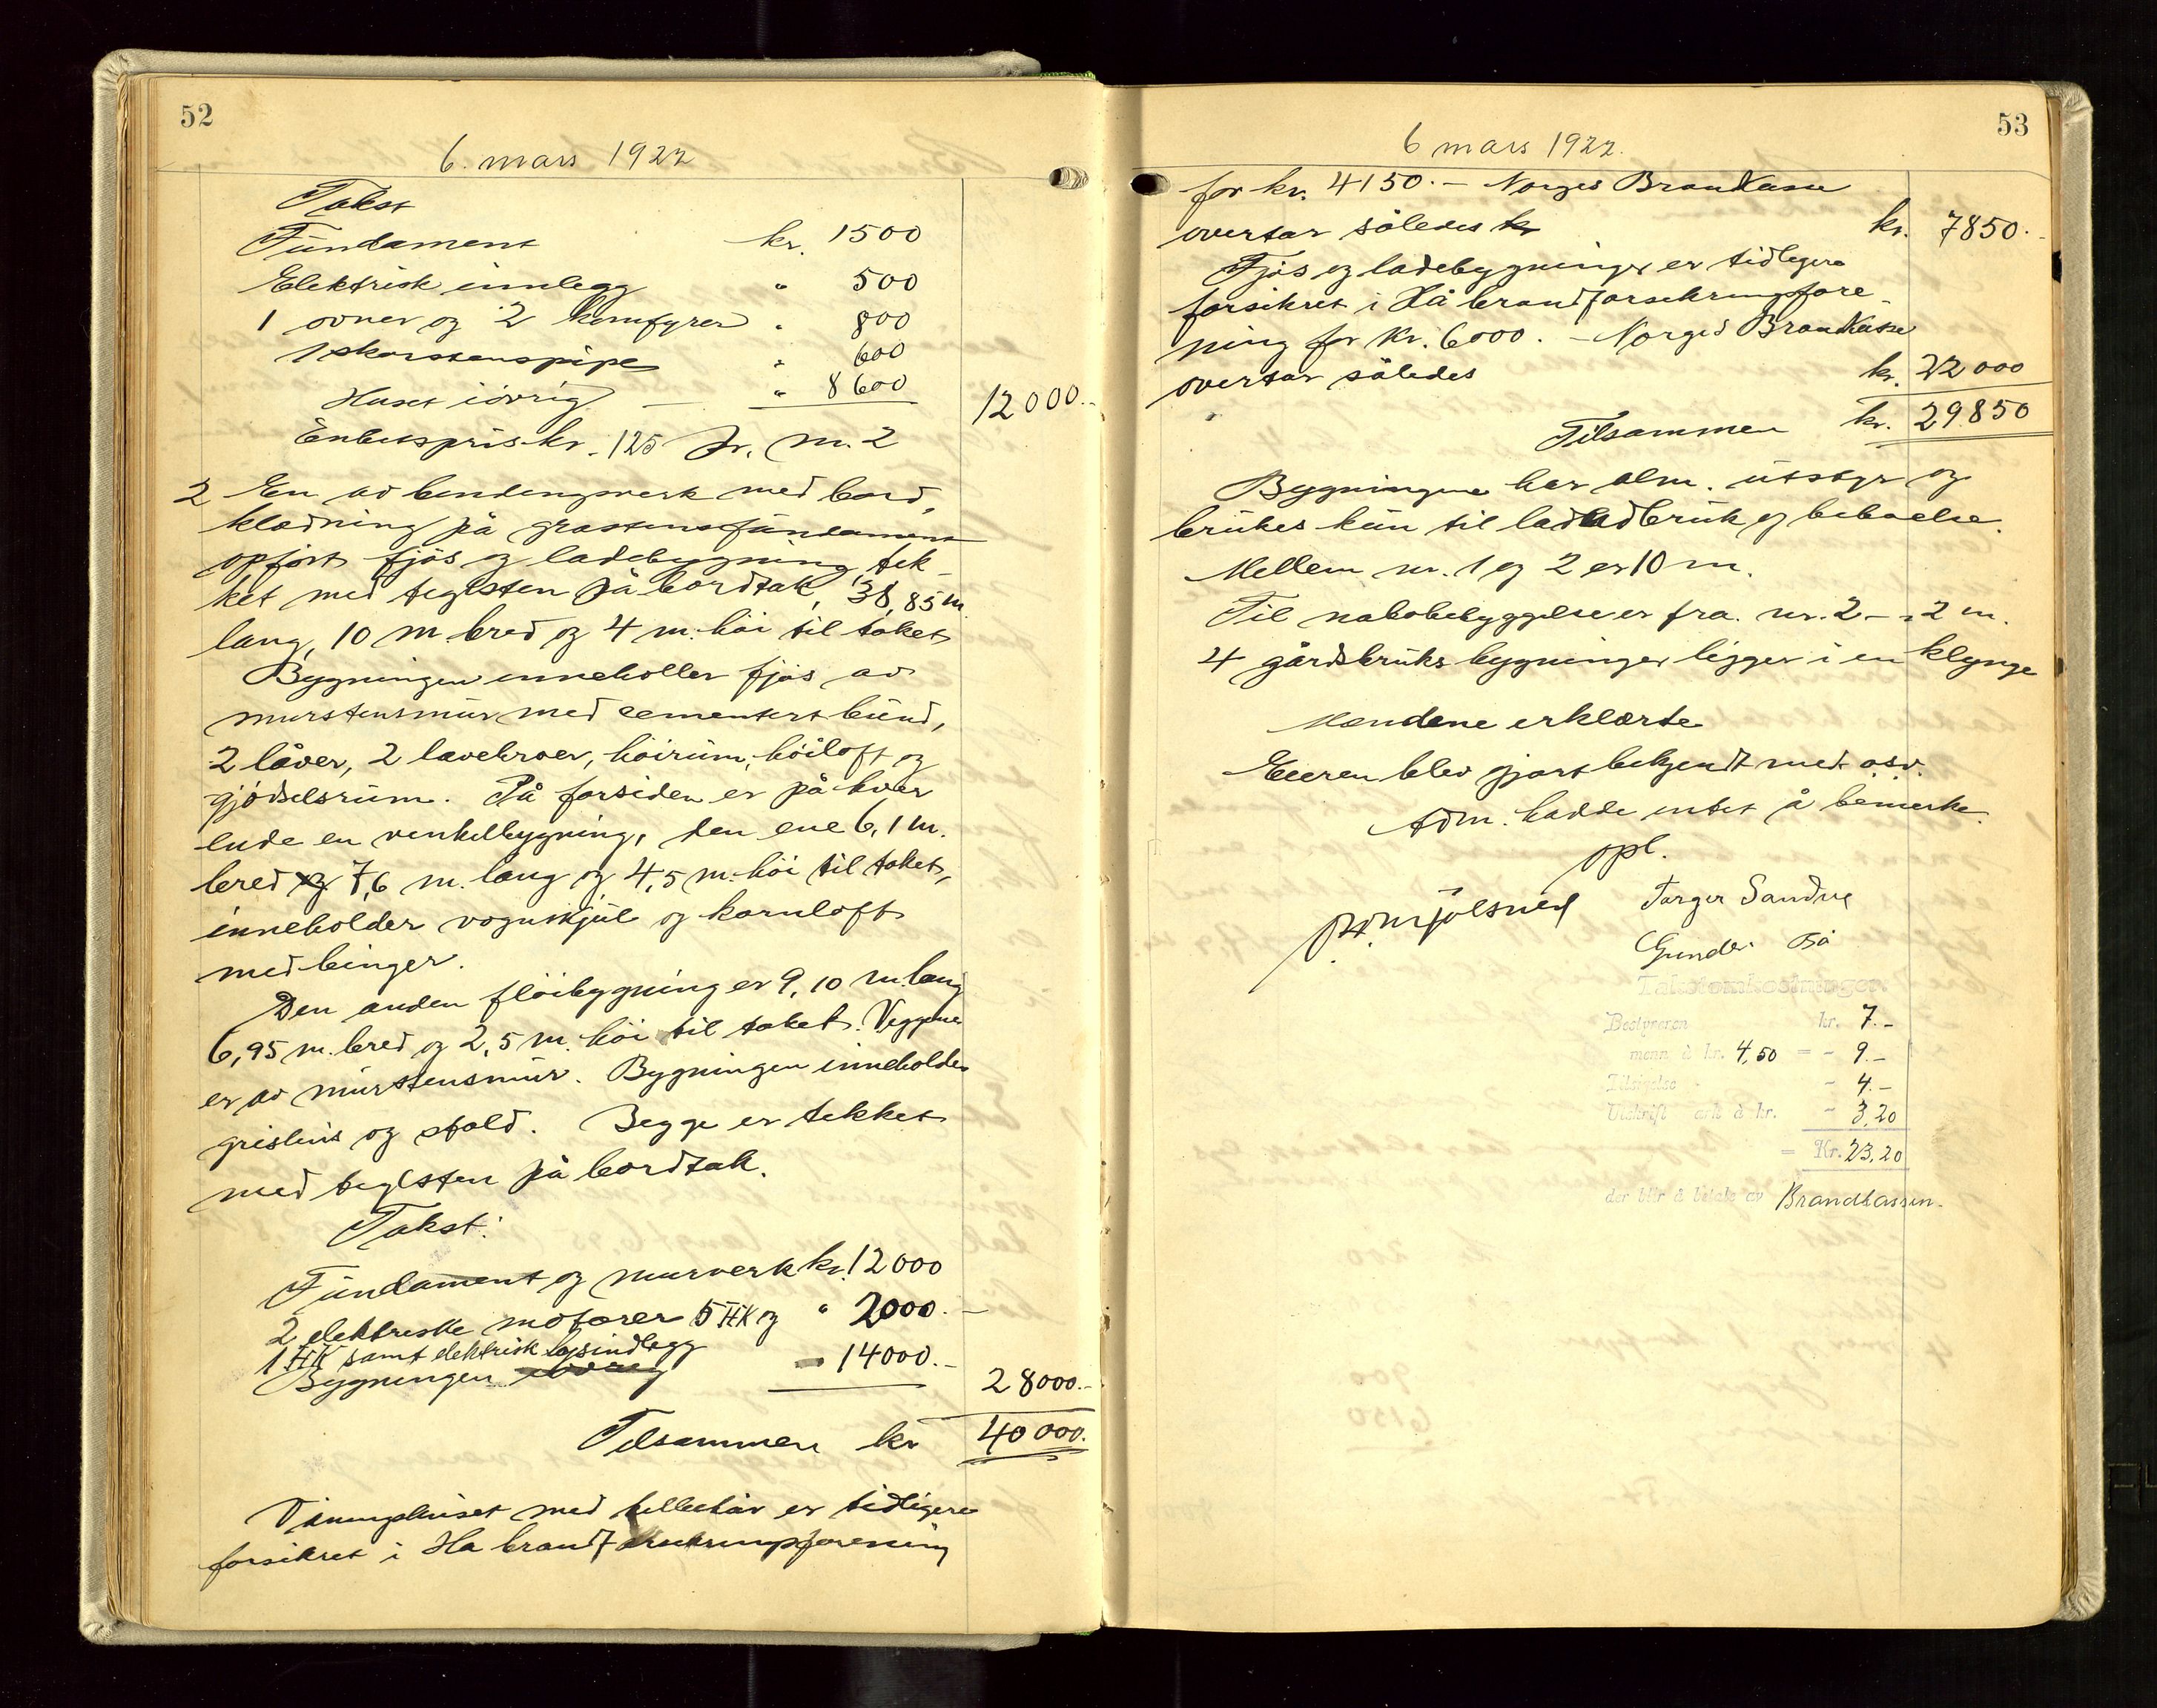 52
6. mars 1922
Takst
Fundament kr. 1500
Elektrisk innlegg " 500
1 ovner og 2 komfyrer " 800
1 skorstenspipe " 600
Huset iøvrig — " 8600 12000.-
Enhetspris kr. 125 pr. m. 2
2 En av bindingsverk med bord,
klædning på gråstensfundament
opført fjøs og ladebygning tek-
ket med teglsten på bordtak, 38,85 m
lang, 10 m. bred og 4 m. høi til taket
Bygningen inneholler fjøs av
murstensmur med cementert bund,
2 låver, 2 lavebroer, høirum, høiloft og
gjødselsrum. På forsiden er på hver
ende en vinkelbygning, den ene 6,1 m.
bred og 7,6 m. lang og 4,5 m. høi til taket,
inneholder vognskjul og kornloft
med binger.
Den anden fløibygning er 9,10 m. lang
6,95 m. bred og 2,5 m. høi til taket. Veggene
er av murstensmur. Bygningen inneholder
grishus og stald. Begge er tekket
med teglsten på bordtak.
Takst:
Fundament og murverk kr. 12000
2 elektriske motorer 5 HK og " 2000.-
1 HK samt elektrisk lysindlegg
Bygningen øvrig - 14000.- 28000.-
Tilsammen kr 40000.
Våningshuset med tilbehør er tidligere
forsikret i Hå brandforsikringsforening
53
6 mars 1922.
for kr. 4150.- Norges Brandkasse
overtar således kr kr. 7850.-
Fjøs og ladebygninger er tidligere
forsikret i Hå brandforsikringsfore-
ning for kr. 6000. - Norges Brandkasse
overtar således kr. 22000
Tilsammen kr. 29850
Bygningene har alm. utstyr og
brukes kun til landbruk og beboelse.
Mellem nr. 1 og 2 er 10 m.
Til nabobebyggelse er fra nr. 2 - 2 m.
4 gårdsbruks bygninger ligger i en klynge
Mændene erklærte
Eieren blev gjort bekjendt med osv.
Adm. hadde intet å bemerke.
opl.
Torger Sandve
Gunder Bø
Takstomkostninger
Bestyreren kr. 7.-
menn à kr. 4,50 = - 9.-
Tilsigelse - 4.-
Utskrift ark à kr. - 3,20
= Kr. 23,20
der blir å betale av Brandkassen.